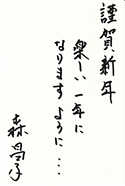 謹賀新年
楽しい一年に
なりますように・・・
森昌子